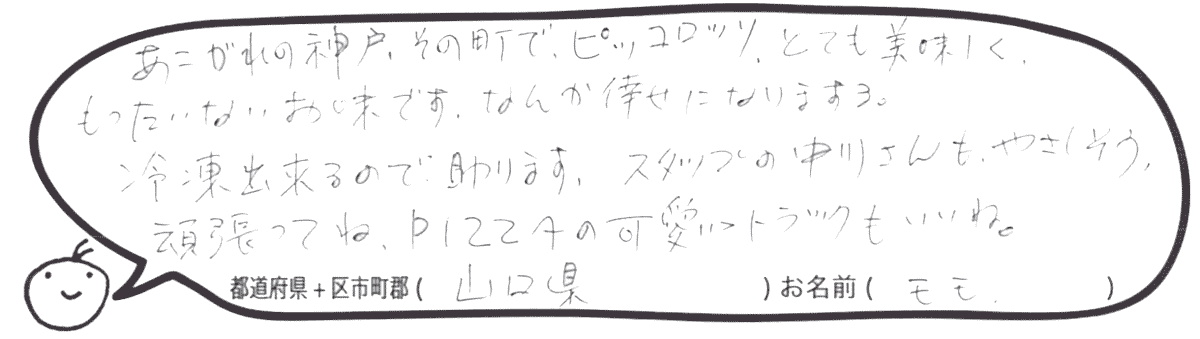 あこがれの神戸、その町で、ピッコロッソ、とても美味しく、
もったいないお味です、なんか倖せになりますヨ。
冷凍出来るので助ります、スタッフの中川さんも、やさしそう、
頑張ってね、PIZZAの可愛いトラックもいいね。
都道府県+区市町郡( 山口県 )お名前( モモ、 )